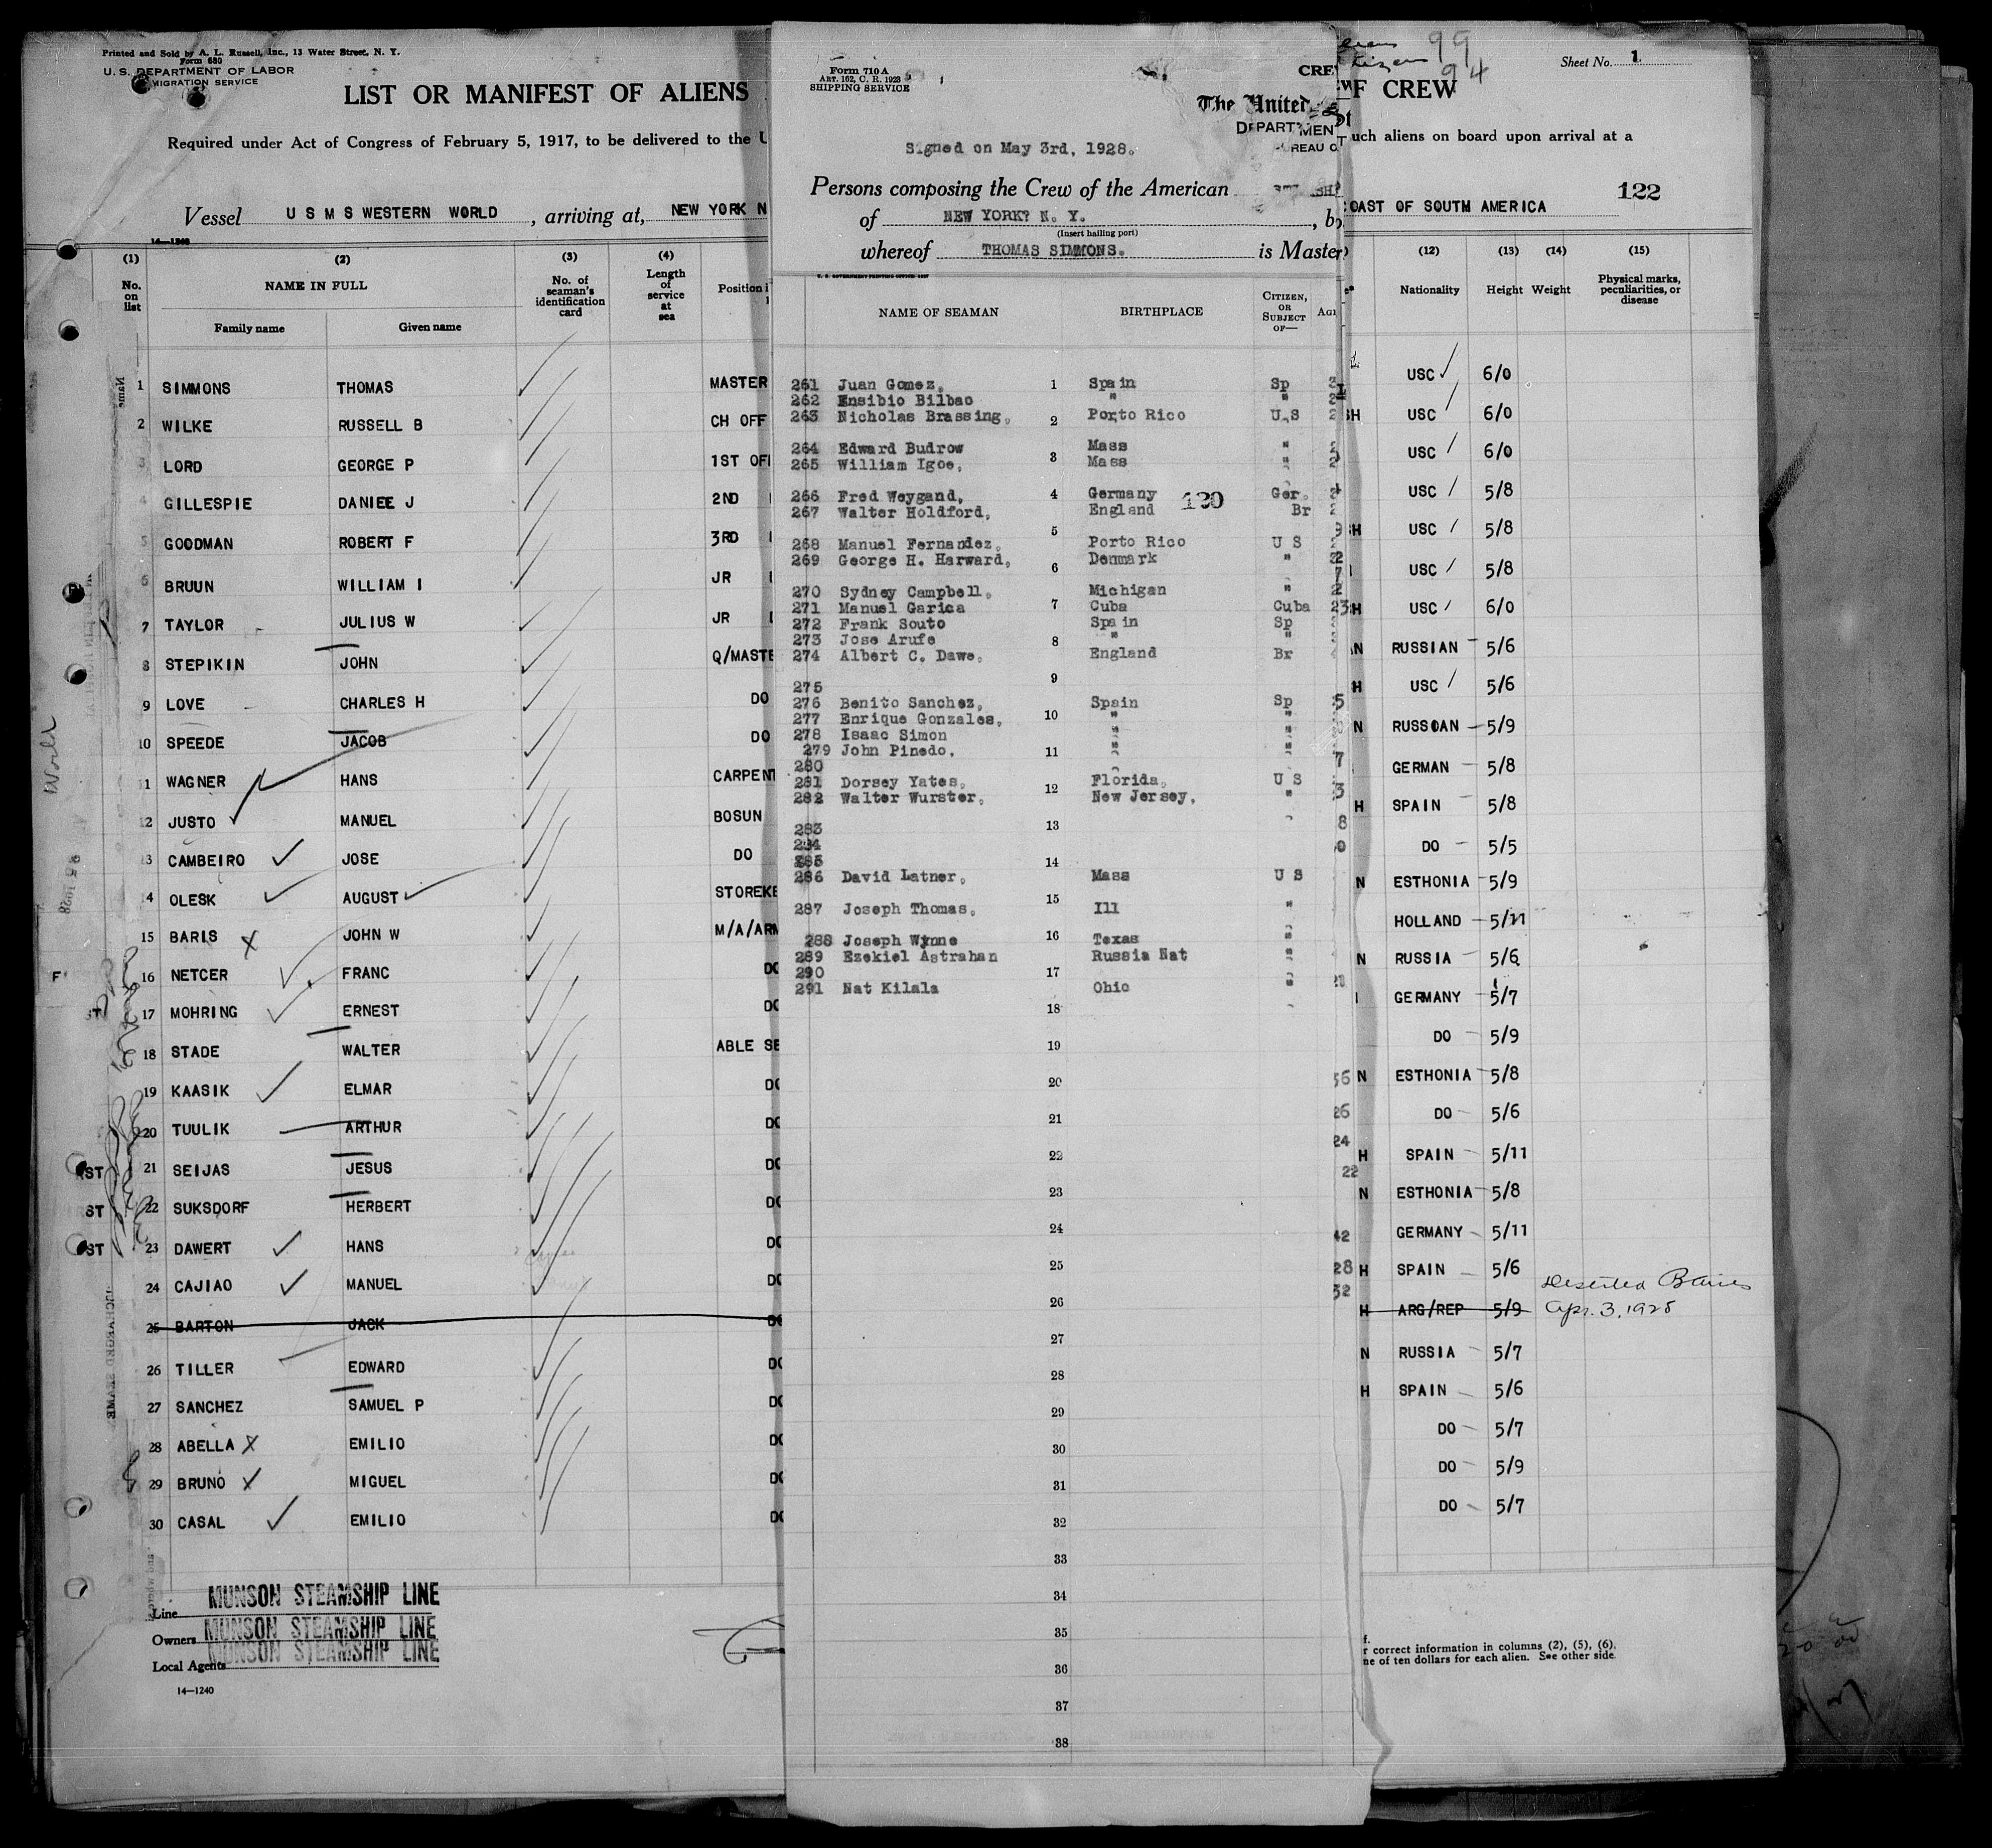 Printed and Sold by A. L. Russell, Inc., 13 Water Street, N. Y.
Form 680
U. S. DEPARTMENT OF LABOR
MIGRATION SERVICE
LIST OR MANIFEST OF ALIENS
Required under Act of Congress of February 5, 1917, to be delivered to the U
Vessel U S M S WESTERN WORLD, arriving at, NEW YORK N
(1) (2) (3) (4)
No. on list
NAME IN FULL
Family name Given name
No. of seaman's identification card
Length of service at sea
Position i
1 SIMMONS THOMAS MASTER
2 WILKE RUSSELL B CH OFF
3 LORD GEORGE P 1ST OF
4 GILLESPIE DANIEE J 2ND
5 GOODMAN ROBERT F 3RD
6 BRUUN WILLIAM I JR
7 TAYLOR JULIUS W JR
8 STEPIKIN JOHN Q/MASTE
9 LOVE CHARLES H DO
10 SPEEDE JACOB DO
11 WAGNER HANS CARPENT
12 JUSTO MANUEL BOSUN
13 CAMBEIRO JOSE DO
14 OLESK AUGUST STOREKE
15 BARIS JOHN W M/A/ARM
16 NETCER FRANC DO
17 MOHRING ERNEST DO
18 STADE WALTER ABLE SE
19 KAASIK ELMAR DO
20 TUULIK ARTHUR DO
21 SEIJAS JESUS DO
22 SUKSDORF HERBERT DO
23 DAWERT HANS DO
24 CAJIAO MANUEL DO
25 BARTON JACK DO
26 TILLER EDWARD DO
27 SANCHEZ SAMUEL P DO
28 ABELLA EMILIO DO
29 BRUNO MIGUEL DO
30 CASAL EMILIO DO
Line MUNSON STEAMSHIP LINE
Owners MUNSON STEAMSHIP LINE
Local Agents MUNSON STEAMSHIP LINE
14—1240
Form 710 A
ART. 162, C. R. 1923
SHIPPING SERVICE
CRE
The United
DEPARTMEN
REAU O
Signed on May 3rd, 1928.
Persons composing the Crew of the American
of NEW YORK? N. Y.
(Insert hailing port)
whereof THOMAS SIMMONS. is Master
NAME OF SEAMAN BIRTHPLACE CITIZEN, OR SUBJECT OF—
261 Juan Gomez, 1 Spain Sp
262 Ensibio Bilbao " "
263 Nicholas Brassing, 2 Porto Rico U.S
264 Edward Budrow Mass "
265 William Igoe, 3 Mass "
266 Fred Weygand, 4 Germany Ger.
120
267 Walter Holdford, England Br
268 Manuel Fernandez, 5 Porto Rico U S
269 George H. Harward, 6 Denmark "
270 Sydney Campbell, Michigan "
271 Manuel Garica 7 Cuba Cuba 23
272 Frank Souto Spain Sp
273 Jose Arufe 8 " "
274 Albert C. Dawe, England Br
275 9
276 Benito Sanchez, Spain Sp
277 Enrique Gonzales, 10 " "
278 Isaac Simon " "
279 John Pinedo, 11 " "
280
281 Dorsey Yates, 12 Florida, U S
282 Walter Wurster, New Jersey, "
283 13
284
285 14
286 David Latner, Mass U S
287 Joseph Thomas, 15 Ill "
288 Joseph Wynne 16 Texas "
289 Ezekiel Astrahan Russia Nat "
290 17 "
291 Nat Kilala Ohio "
18
19
20
21
22
23
24
25
26
27
28
29
30
31
32
33
34
35
36
37
38
99
94
Sheet No. 1
F CREW
uch aliens on board upon arrival at a
COAST OF SOUTM AMERICA
122
(12) (13) (14) (15)
Nationality Height Weight Physical marks, peculiarities, or disease
USC 6/0
H USC 6/0
USC 6/0
USC 5/8
H USC 5/8
USC 5/8
H USC 6/0
N RUSSIAN 5/6
H USC 5/6
N RUSSOAN 5/9
GERMAN 5/8
H SPAIN 5/8
DO 5/5
N ESTHONIA 5/9
HOLLAND 5/11
N RUSSIA 5/6
GERMANY 5/7
DO 5/9
N ESTHONIA 5/8
DO 5/6
H SPAIN 5/11
N ESTHONIA 5/8
GERMANY 5/11
H SPAIN 5/6
H ARG/REP 5/9 Deserted B Aires Apr. 3, 1928
N RUSSIA 5/7
H SPAIN 5/6
DO 5/7
DO 5/9
DO 5/7
f.
r correct information in columns (2), (5), (6).
ne of ten dollars for each alien. See other side.